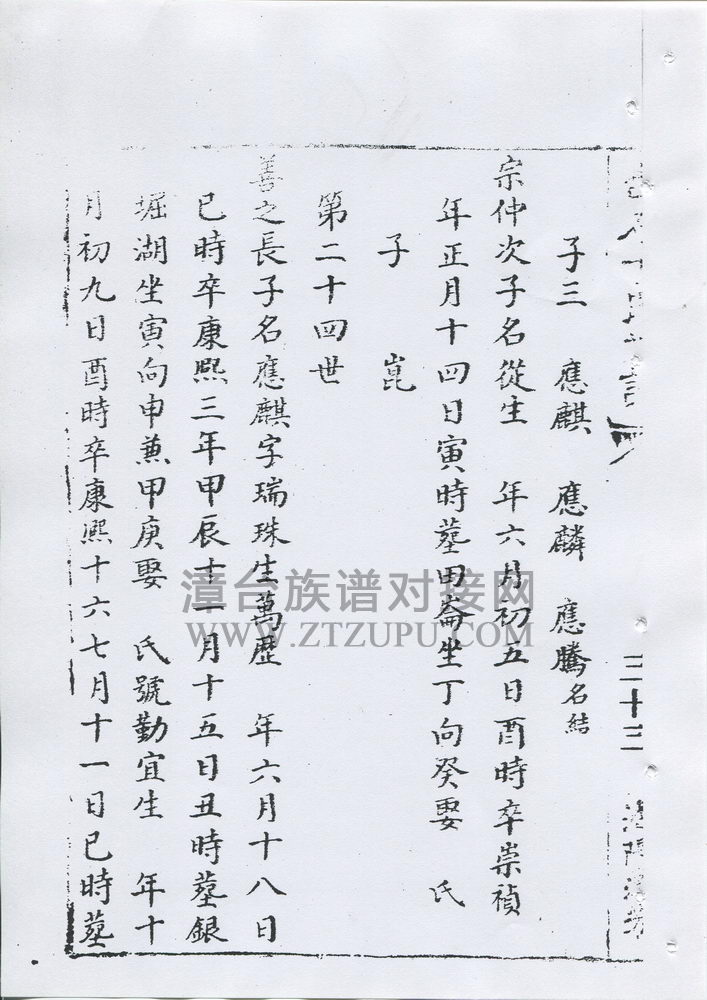 三十三
子三 應麒 應麟 應騰名結
宗仲次子名從生 年六月初五日酉時卒崇禎
年正月十四日寅時墓田崙坐丁向癸娶 氏
子 崑
第二十四世
善之長子名應麒字瑞珠生萬歷 年六月十八日
巳時卒康熙三年甲辰十一月十五日丑時墓銀
堀湖坐寅向申兼甲庚娶 氏號勤宜生 年十
月初九日酉時卒康熙十六七月十一日巳時墓
漳台族谱对接网
WWW.ZTZUPU.COM